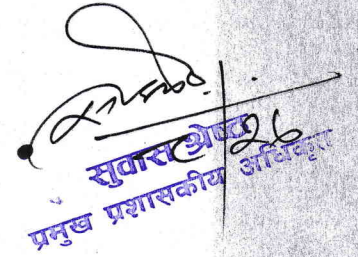 26
सुवास श्रेष्ठ
प्रमुख प्रशासकीय अधिकृत